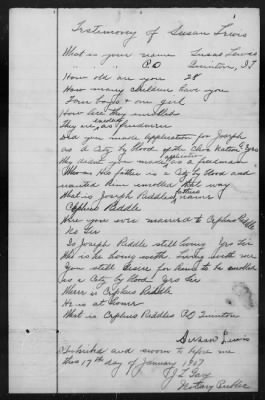 Testimony of Susan Lewis
What is your name Susan Lewis
" " " P.O Quinton, I.T
How old are you 28
How many children have you
Four boys & one girl
How are they enrolled
They are, as freedmen
Did you made application for Joseph
as a City by blood of the Choc Nation Yes
Why did you made application as a freedman
His father is a City by blood and
wanted him enrolled that way
What is Joseph Riddles fathers name
Cephus Riddle
Were you ever married to Cephus Riddle
No Sir
Is Joseph Riddle still living Yes Sir
Who is he living with Living with me
You still desire for him to be enrolled
as a City by blood Yes Sir
Where is Cephus Riddle
He is at Home
What is Cephus Riddles P.O Quinton
Susan Lewis
Subscribed and sworn to before me
this 17th day of January 1907
Notary Public